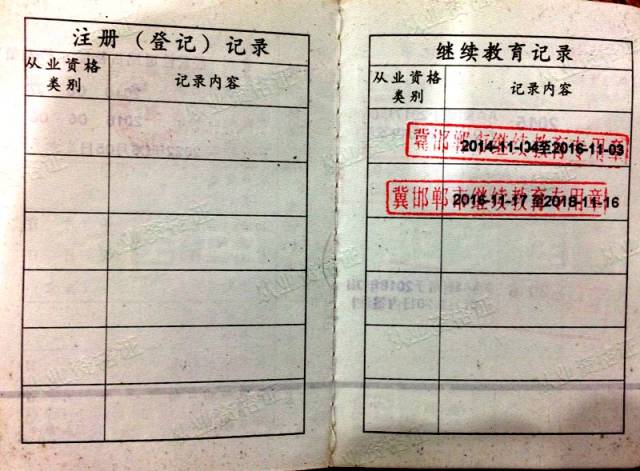 注册（登记）记录
从业资格
类别
记录内容
继续教育记录
从业资格
类别
记录内容
冀邯郸市继续教育专用章
2014-11-04至2016-11-03
冀邯郸市继续教育专用章
2016-11-17 至2018-11-16